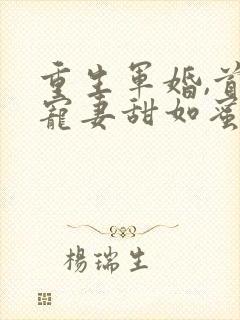 重生軍婚,首
寵妻甜如蜜
楊瑞生